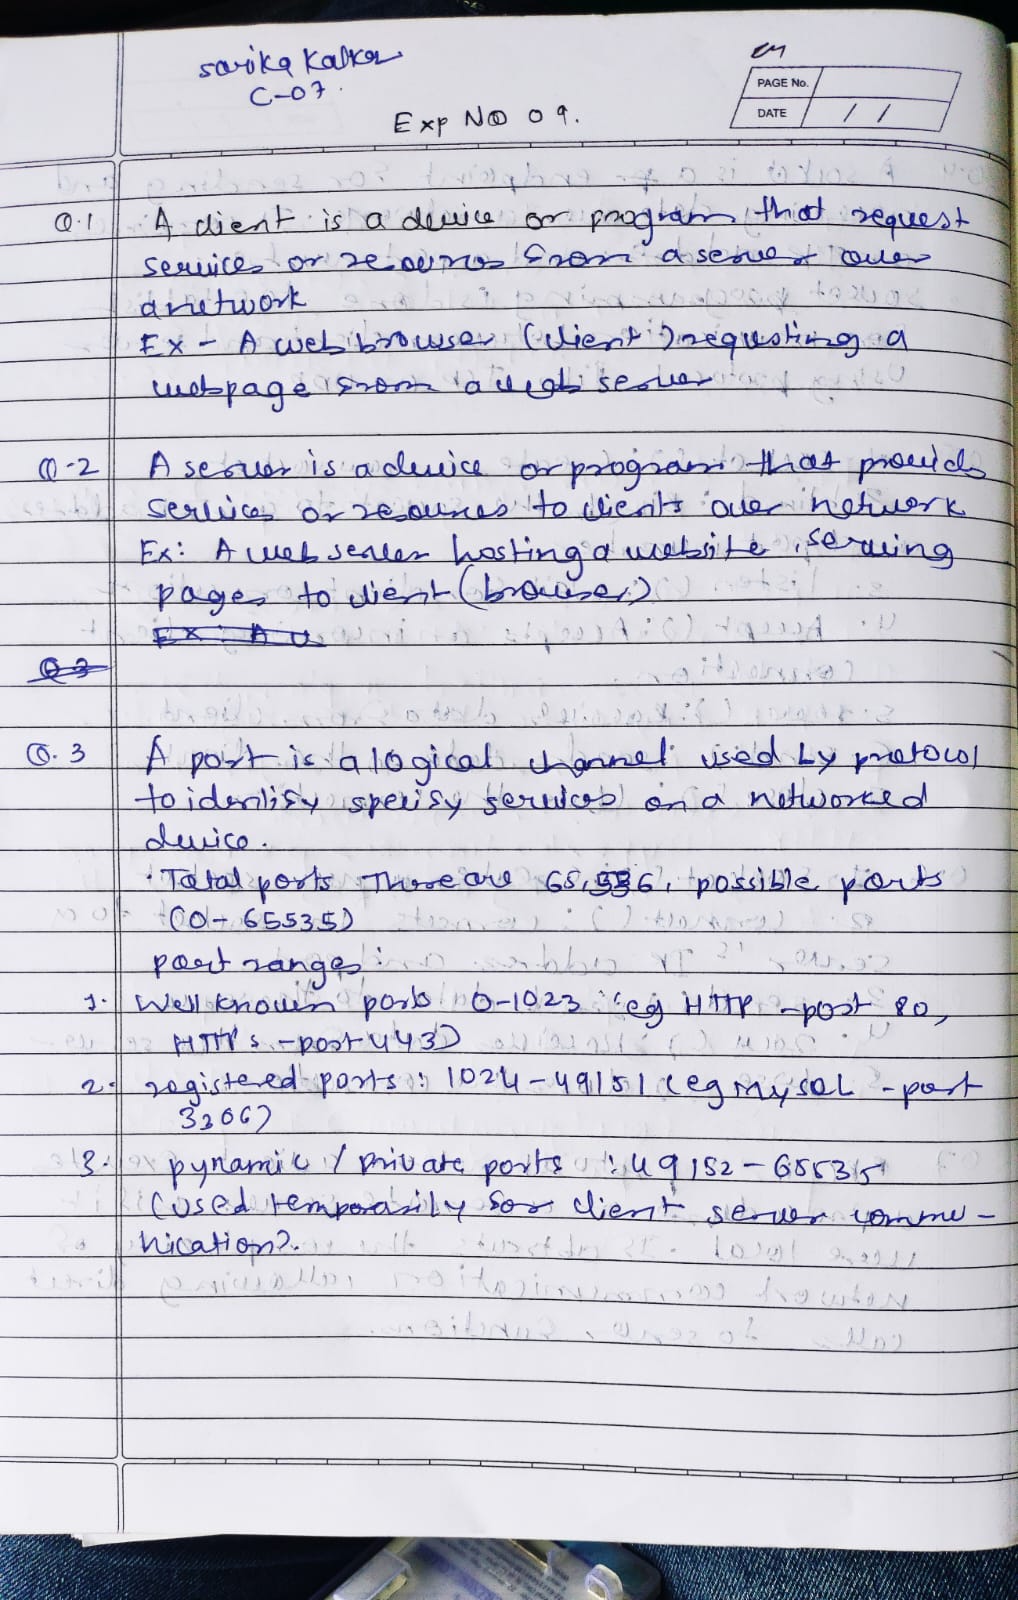 sarika Kalkar
C-07.
PAGE No.
DATE / /
Exp NO 09.
Q.1 A client is a device or program that request
services or resources from a server over
a network
Ex - A web browser (client) requesting a
webpage from a web server
Q-2 A server is a device or program that provids
services or resources to clients over network
Ex: A web server hosting a website, serving
pages to client (browser)
Ex: A
Q3
Q.3 A port is a logical channel used by protocol
to identify specify services on a networked
device.
Total ports There are 65,536, possible ports
(0-65535)
port ranges:
1. Well known ports 0-1023 (eg HTTP - port 80,
HTTPs - port 443)
2. registered ports: 1024-49151 (eg MySQL - port
3306)
3. Dynamic / private ports : 49152-65535
(used temporarily for client server commu-
nication).